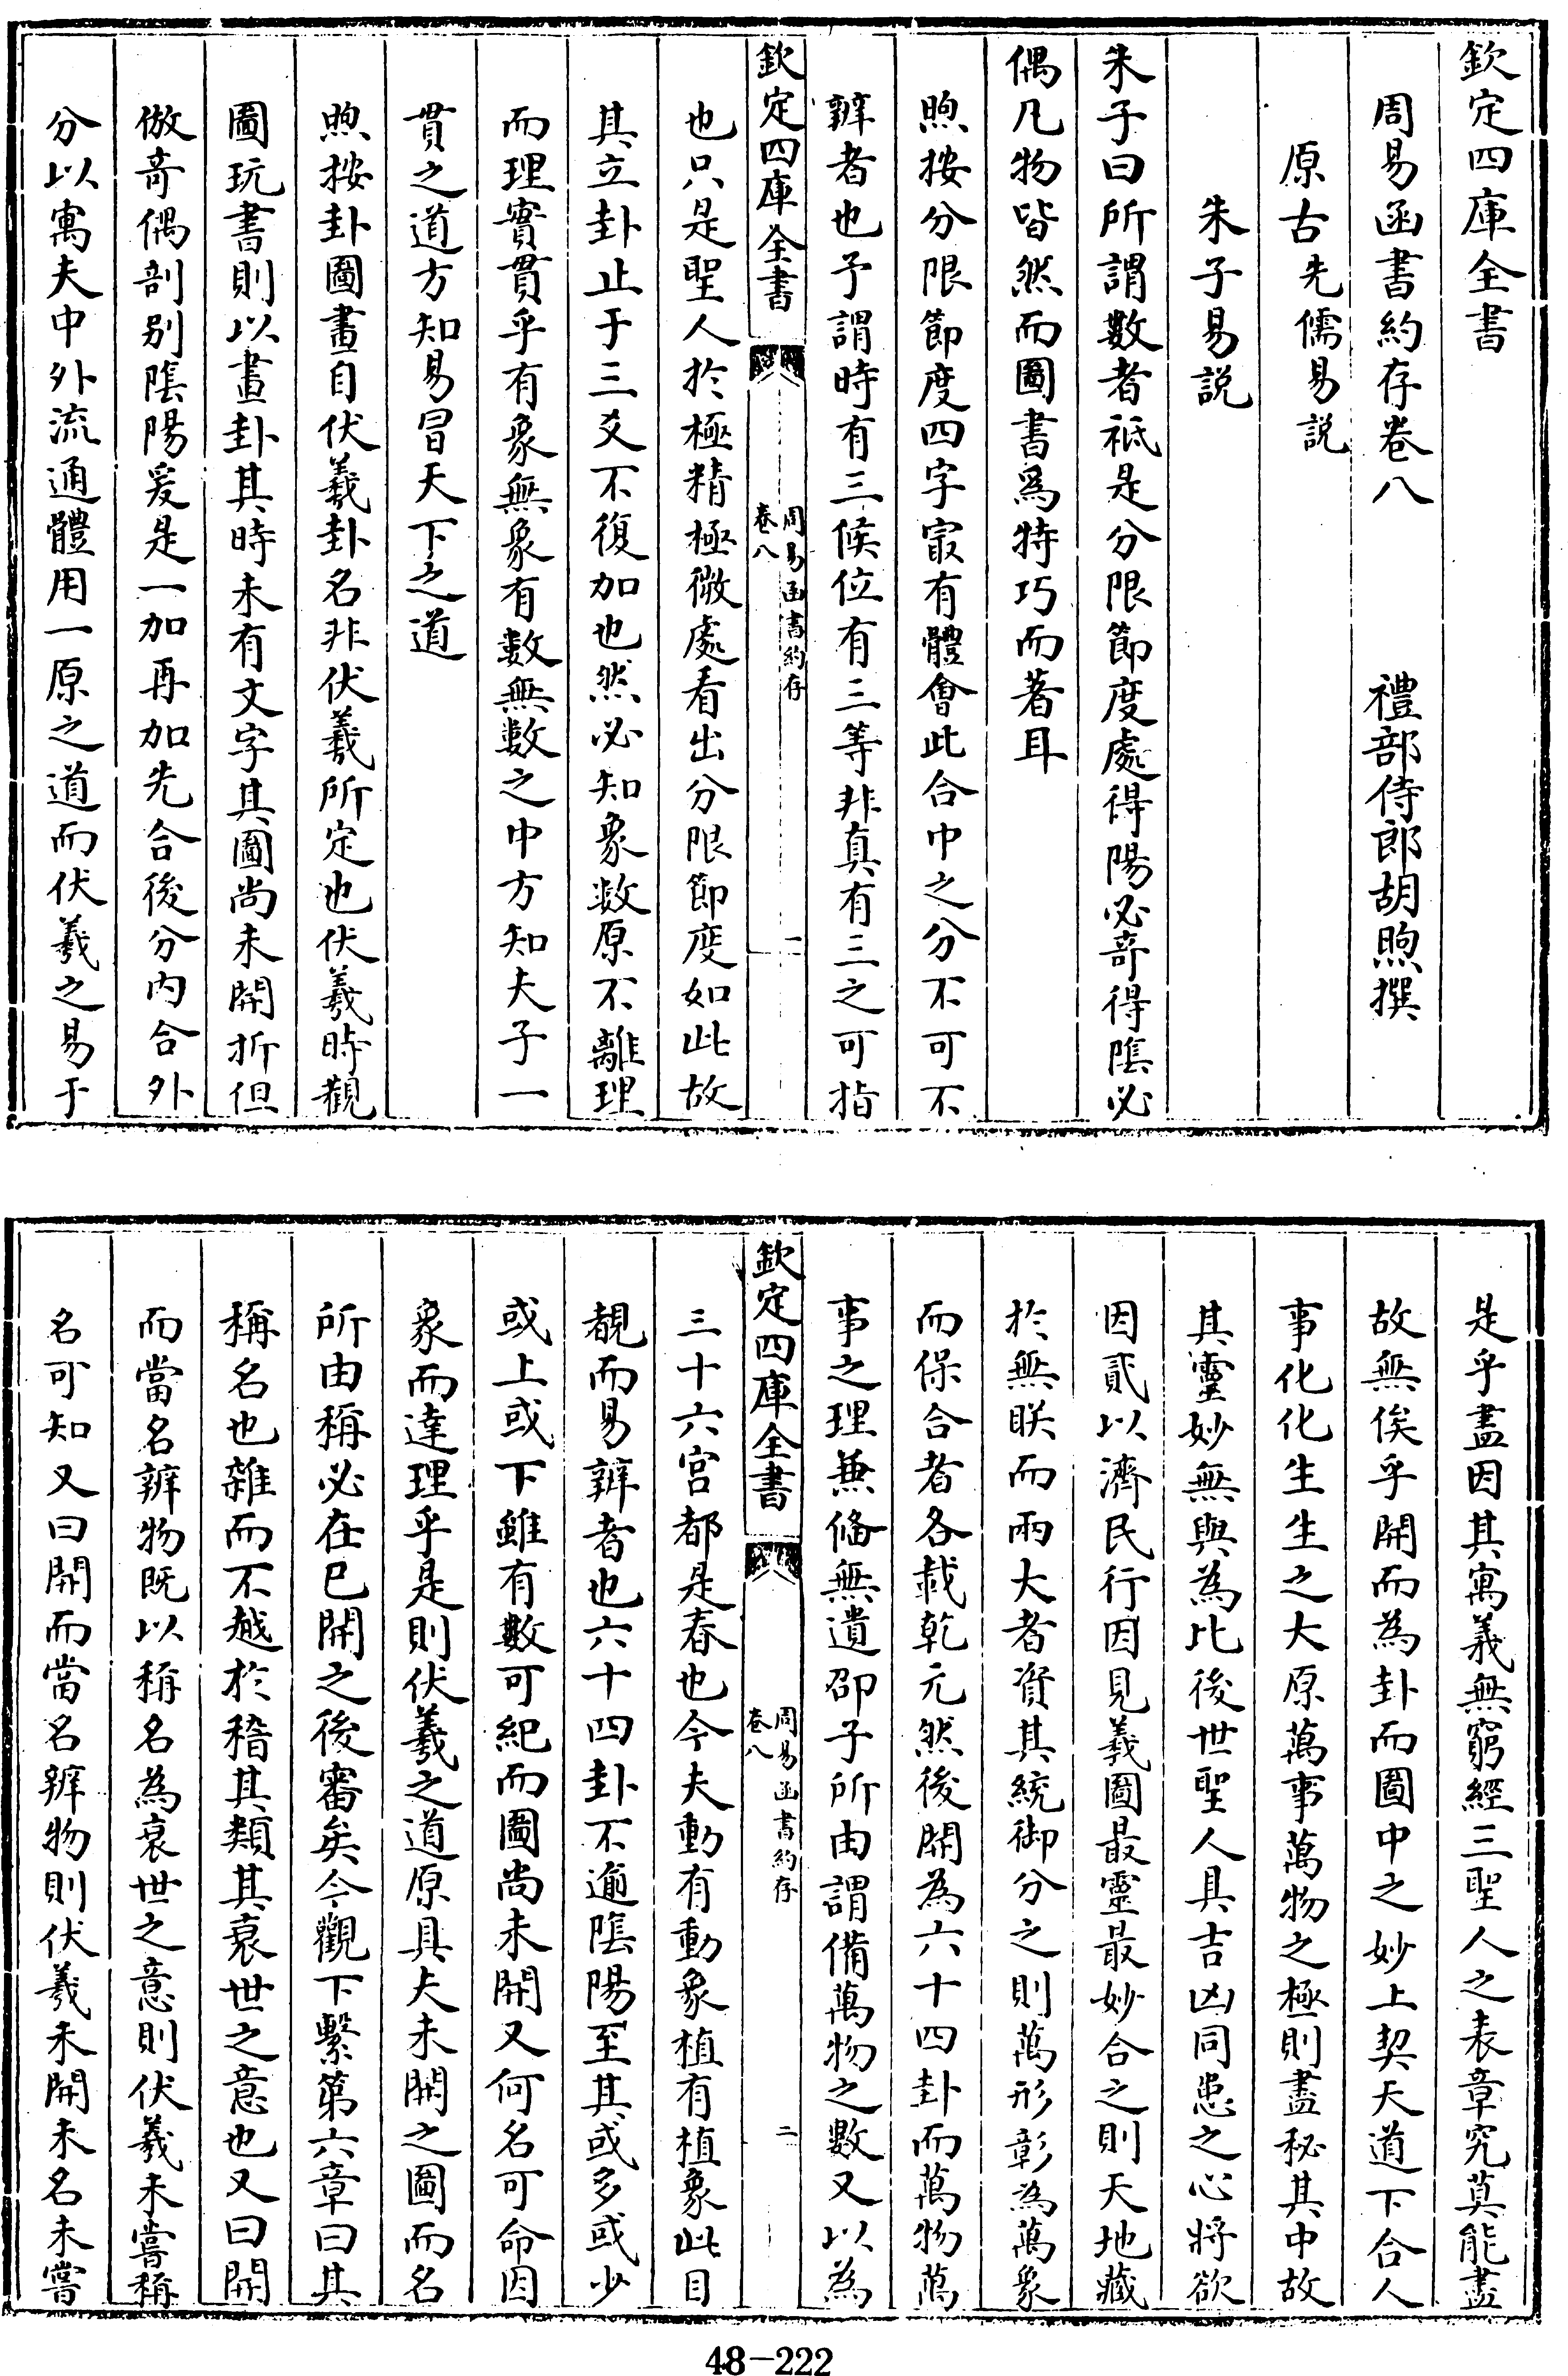 欽定四庫全書
周易函書約存卷八　禮部侍郎胡煦撰
原古先儒易説
朱子易説
朱子曰所謂數者祇是分限節度處得陽必奇得隂必
偶凡物皆然而圖書爲特巧而著耳
煦按分限節度四字㝡有體會此合中之分不可不
辨者也予謂時有三候位有三等非真有三之可指
欽定四庫全書
周易函書約存
卷八
一
也只是聖人於極精極微處看出分限節度如此故
其立卦止于三爻不復加也然必知象數原不離理
而理實貫乎有象無象有數無數之中方知夫子一
貫之道方知易冒天下之道
煦按卦圖畫自伏羲卦名非伏羲所定也伏羲時觀
圖玩書則以畫卦其時未有文字其圖尚未開折但
倣奇偶剖别隂陽爰是一加再加先合後分内合外
分以寓夫中外流通體用一原之道而伏羲之易于
是乎盡因其寓義無窮經三聖人之表章究莫能盡
故無俟乎開而為卦而圖中之妙上契天道下合人
事化化生生之大原萬事萬物之極則盡秘其中故
其靈妙無與為比後世聖人具吉凶同患之心將欲
因貳以濟民行因見羲圖最靈最妙合之則天地藏
於無朕而兩大者資其統御分之則萬形彰為萬象
而保合者各載乾元然後開為六十四卦而萬物萬
事之理兼偹無遺邵子所由謂備萬物之數又以為
欽定四庫全書
周易函書約存
卷八
二
三十六宫都是春也今夫動有動象植有植象此目
覩而易辨者也六十四卦不逾隂陽至其或多或少
或上或下雖有數可紀而圖尚未開又何名可命因
象而達理乎是則伏羲之道原具夫未開之圖而名
所由稱必在已開之後審矣今觀下繫第六章曰其
稱名也雜而不越於稽其類其衰世之意也又曰開
而當名辨物既以稱名為衰世之意則伏羲未嘗稱
名可知又曰開而當名辨物則伏羲未開未名未嘗
48-222